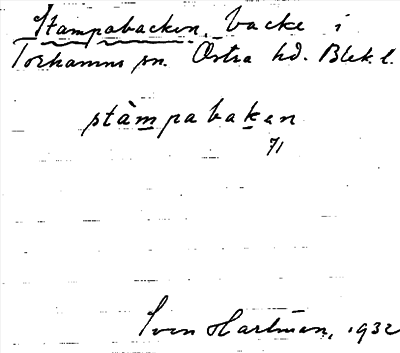 Stampabacken, backe i
Torhamns sn. Östra hd. Blek. l.
stàmpabakan
71
Sven Hartman, 1932